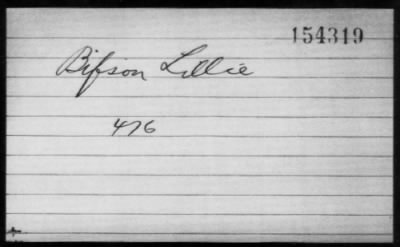 154319
Bifson Lillie
476